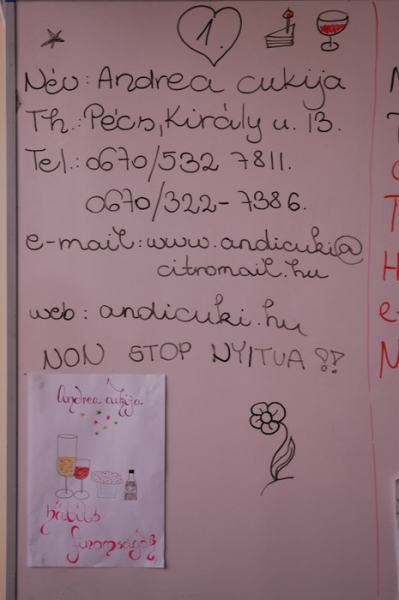 1.
Név: Andrea cukija
Th.: Pécs, Király u. 13.
Tel.: 0670/532 7811.
0670/322-7386.
e-mail: www.andicuki@
citromail.hu
web: andicuki.hu
NON STOP NYITVA !?
Andrea cukija